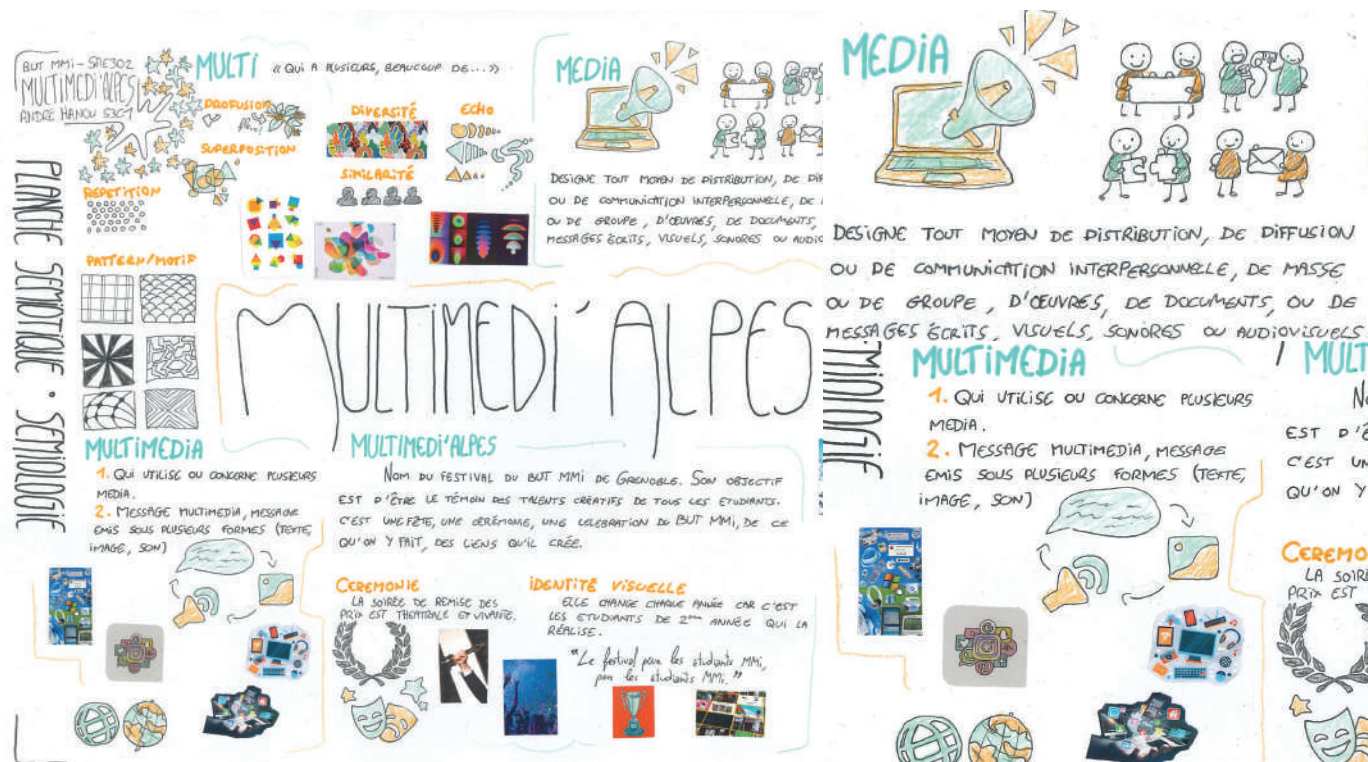 BUT MMI - SAE302
MULTIMEDI'ALPES
ANDRÉ HANOU S3C1
PLANCHE SEMIOTIQUE • SEMIOLOGIE
MULTI
« QUI A PLUSIEURS, BEAUCOUP DE... »
PROFUSION
SUPERPOSITION
REPETITION
PATTERN/MOTIF
DIVERSITÉ
SIMILARITÉ
ECHO
MEDIA
DESIGNE TOUT MOYEN DE DISTRIBUTION, DE DIF
OU DE COMMUNICATION INTERPERSONNELLE, DE
OU DE GROUPE, D'ŒUVRES, DE DOCUMENTS,
MESSAGES ÉCRITS, VISUELS, SONORES OU AUDIO
MULTIMEDI'ALPES
MULTIMEDIA
1. QUI UTILISE OU CONCERNE PLUSIEURS
MEDIA.
2. MESSAGE MULTIMEDIA, MESSAGE
EMIS SOUS PLUSIEURS FORMES (TEXTE,
IMAGE, SON)
MULTIMEDI'ALPES
NOM DU FESTIVAL DU BUT MMI DE GRENOBLE. SON OBJECTIF
EST D'ÊTRE LE TÉMOIN DES TALENTS CRÉATIFS DE TOUS LES ETUDIANTS.
C'EST UNE FÊTE, UNE CÉRÉMONIE, UNE CELEBRATION DU BUT MMI, DE CE
QU'ON Y FAIT, DES LIENS QU'IL CRÉE.
CEREMONIE
LA SOIRÉE DE REMISE DES
PRIX EST THEATRALE ET VIVANTE.
IDENTITÉ VISUELLE
ELLE CHANGE CHAQUE ANNÉE CAR C'EST
LES ETUDIANTS DE 2ème ANNÉE QUI LA
RÉALISE.
"Le festival pour les étudiants MMi,
par les étudiants MMi."
MEDIA
DESIGNE TOUT MOYEN DE DISTRIBUTION, DE DIFFUSION
OU DE COMMUNICATION INTERPERSONNELLE, DE MASSE
OU DE GROUPE, D'ŒUVRES, DE DOCUMENTS, OU DE
MESSAGES ÉCRITS, VISUELS, SONORES OU AUDIOVISUELS
MIOLOGIE
MULTIMEDIA
1. QUI UTILISE OU CONCERNE PLUSIEURS
MEDIA.
2. MESSAGE MULTIMEDIA, MESSAGE
EMIS SOUS PLUSIEURS FORMES (TEXTE,
IMAGE, SON)
MULT
NO
EST D'Ê
C'EST UN
QU'ON Y
CEREMO
LA SOIRÉ
PRIX EST